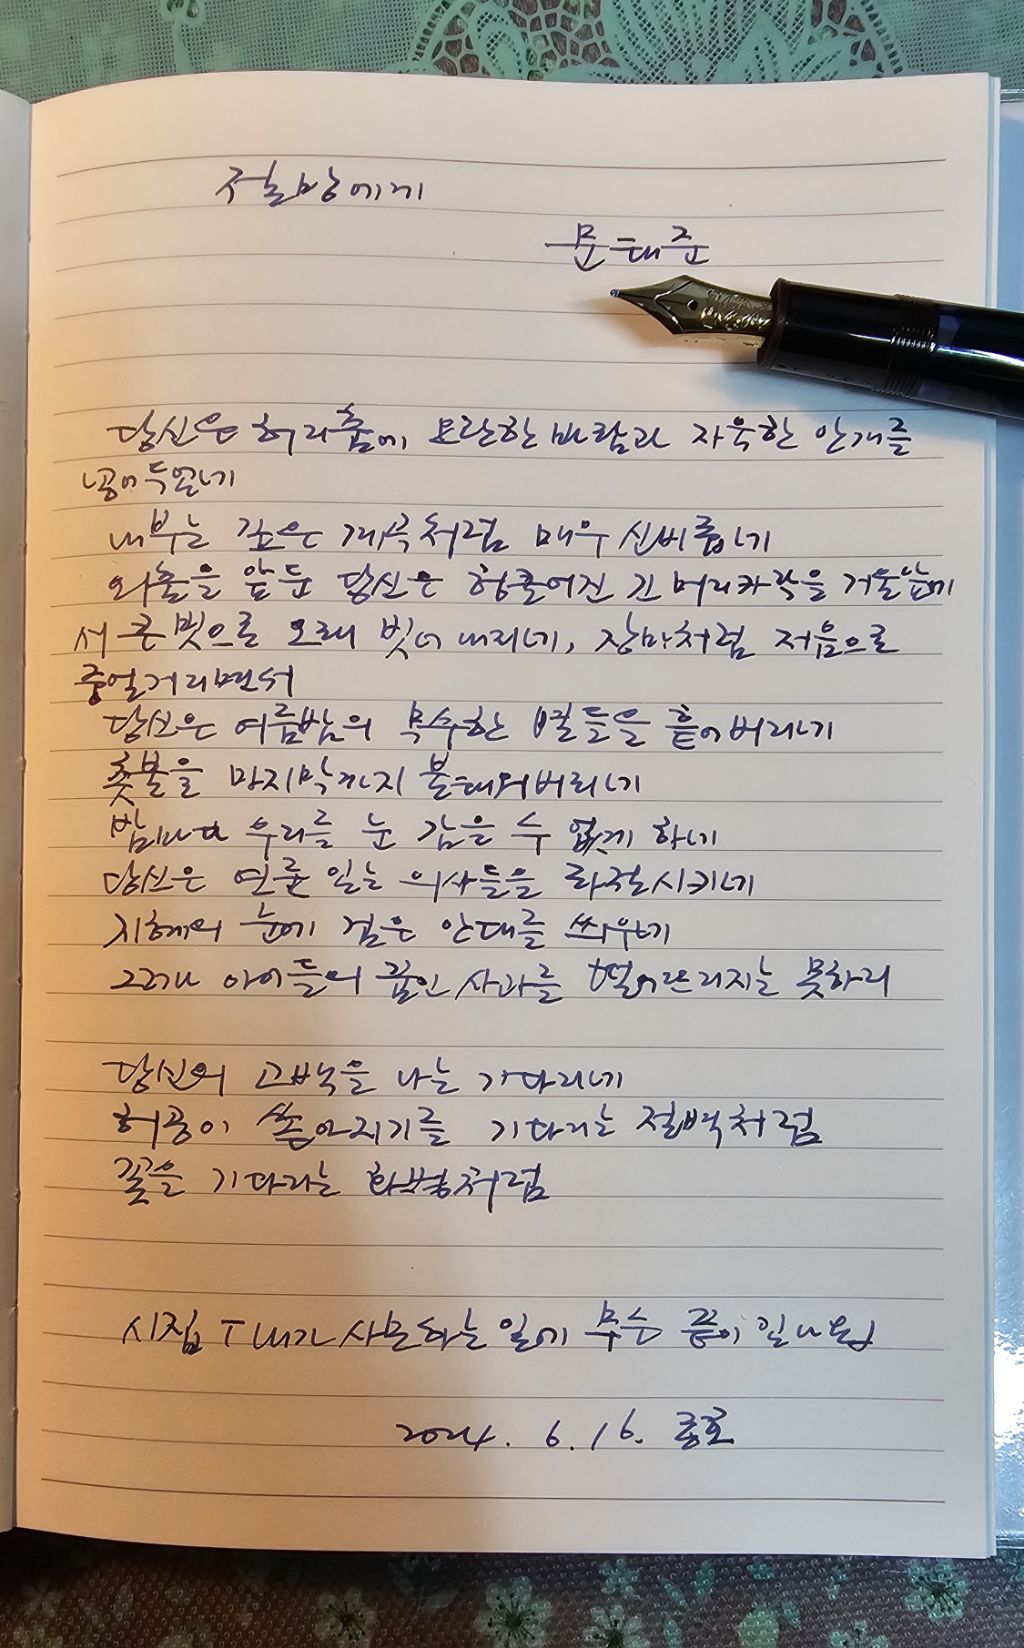 절망에게
문태준
당신은 허리춤에 요란한 바람과 자욱한 안개를
넣어두었네
내부는 깊은 계곡처럼 매우 신비롭네
외출을 앞둔 당신은 헝클어진 긴 머리카락을 거울앞에
서 큰 빗으로 오래 빗어 내리네, 장마처럼 저음으로
중얼거리면서
당신은 여름밤의 무수한 별들을 흩어버리네
촛불을 마지막까지 불태워버리네
밤마다 우리를 눈 감을 수 없게 하네
당신은 연륜 있는 의사들을 좌절시키네
지혜의 눈에 검은 안대를 씌우네
그러나 아이들의 꿈인 사과를 떨어뜨리지는 못하리
당신의 고백을 나는 기다리네
허공이 쏟아지기를 기다리는 절벽처럼
꽃을 기다리는 화병처럼
시집 「내가 사모하는 일에 무슨 끝이 있나요」
2024. 6. 16. 종호